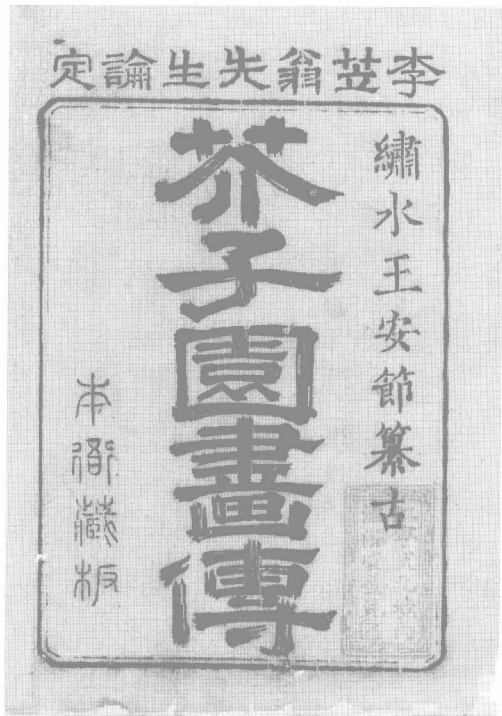 李笠翁先生論定
繡水王安節纂古
芥子園畫傳
本衙藏板